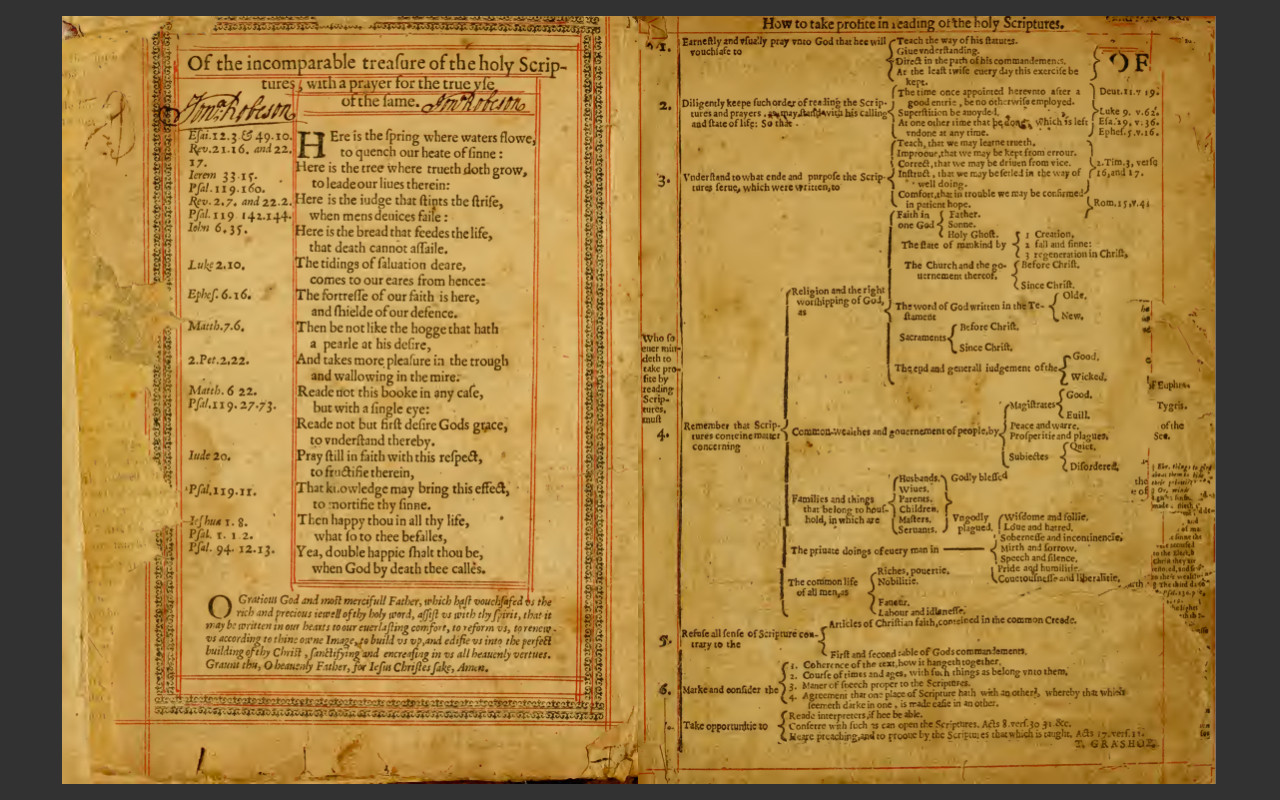 Of the incomparable treaſure of the holy Scrip-
tures, with a prayer for the true vſe
of the ſame.
Eſai.12.3 & 49.10.
Rev.21.16. and 22.
17.
Ierem 33.15.
Pſal.119.160.
Rev.2.7. and 22.2.
Pſal.119 142.144.
Iohn 6.35.
Luke 2.10.
Epheſ.6.16.
Matth.7.6.
2.Pet.2.22.
Matth.6 22.
Pſal.119.27.73.
Iude 20.
Pſal.119.11.
Ioſhua 1.8.
Pſal. 1. 1.2.
Pſal. 94. 12.13.
HEre is the ſpring where waters flowe,
to quench our heate of ſinne:
Here is the tree where trueth doth grow,
to leade our liues therein:
Here is the iudge that ſtints the ſtrife,
when mens deuices faile:
Here is the bread that feedes the life,
that death cannot aſſaile.
The tidings of ſaluation deare,
comes to our eares from hence:
The fortreſſe of our faith is here,
and ſhielde of our defence.
Then be not like the hogge that hath
a pearle at his deſire,
And takes more pleaſure in the trough
and wallowing in the mire.
Reade not this booke in any caſe,
but with a ſingle eye:
Reade not but firſt deſire Gods grace,
to vnderſtand thereby.
Pray ſtill in faith with this reſpect,
to fructifie therein,
That knowledge may bring this effect,
to mortifie thy ſinne.
Then happy thou in all thy life,
what ſo to thee befalles,
Yea, double happie ſhalt thou be,
when God by death thee calles.
O Gratious God and moſt mercifull Father, which haſt vouchſafed vs the
rich and precious iewell of thy holy word, aſſiſt vs with thy ſpirit, that it
may be written in our hearts to our euerlaſting comfort, to reform vs, to renew
vs according to thine owne Image, to build vs vp, and edifie vs into the perfect
building of thy Chriſt, ſanctifying and encreaſing in vs all heauenly vertues.
Graunt this, O heauenly Father, for Ieſus Chriſtes ſake, Amen.
How to take profite in reading of the holy Scriptures.
Who ſo
euer min-
deth to
take pro-
fite by
reading
Scrip-
tures,
muſt
1.
Earneſtly and vſually pray vnto God that hee will
vouchſafe to
Teach the way of his ſtatutes.
Giue vnderſtanding.
Direct in the path of his commandements.
At the leaſt twiſe euery day this exerciſe be
kept.
2.
Diligently keepe ſuch order of reading the Scrip-
tures and prayers, as may ſtand with his calling
and ſtate of life: So that
The time once appointed hereunto after a
good entrie, be no otherwiſe employed.
Superſtition be auoyded.
At one other time that be done, which is left
vndone at any time.
Deut.11.v 19.
Luke 9. v.62.
Eſa.29. v.36.
Epheſ.5.v.16.
3.
Vnderſtand to what ende and purpoſe the Scrip-
tures ſerue, which were written, to
Teach, that we may learne trueth.
Improoue, that we may be kept from errour.
Correct, that we may be driuen from vice.
Inſtruct, that we may be ſetled in the way of
well doing.
Comfort, that in trouble we may be confirmed
in patient hope.
2.Tim.3, verſe
16, and 17.
Rom.15.v.4.
4.
Remember that Scrip-
tures conteine matter
concerning
Religion and the right
worſhipping of God,
as
Faith in
one God
Father.
Sonne.
Holy Ghoſt.
The ſtate of mankind by
1 Creation,
2 fall and ſinne:
3 regeneration in Chriſt,
The Church and the go-
uernement thereof.
Before Chriſt.
Since Chriſt.
The word of God written in the Te-
ſtament
Olde.
New.
Sacraments
Before Chriſt.
Since Chriſt.
The end and generall iudgement of the
Good.
Wicked.
Common-wealthes and gouernement of people, by
Magiſtrates
Good.
Euill.
Peace and warre.
Proſperitie and plagues.
Subiectes
Quiet.
Diſordered.
Families and things
that belong to houſ-
hold, in which are
Husbands.
Wiues.
Parents.
Children.
Maſters.
Seruants.
Godly bleſſed
Vngodly
plagued.
The private doings of euery man in
Wiſdome and follie.
Loue and hatred.
Soberneſſe and incontinencie.
Mirth and ſorrow.
Speech and ſilence.
Pride and humilitie.
Couetouſneſſe and liberalitie.
The common life
of all men, as
Riches, pouertie.
Nobilitie.
Fauour.
Labour and idleneſſe.
5.
Refuſe all ſenſe of Scripture con-
trary to the
Articles of Chriſtian faith, conteined in the common Creede.
Firſt and second table of Gods commandements.
6.
Marke and conſider the
1. Coherence of the text, how it hangeth together.
2. Courſe of times and ages, with ſuch things as belong vnto them.
3. Maner of ſpeech proper to the Scriptures.
4. Agreement that one place of Scripture hath with an other, whereby that which
ſeemeth darke in one, is made eaſie in an other.
Take opportunitie to
Reade interpreters, if hee be able.
Conferre with ſuch as can open the Scriptures. Acts 8.verſ.30 31 &c.
Heare preaching, and to prooue by the Scriptures that which is taught. Acts 17.verſ.11.
T. GRASHOP.
OF
Euphra.
Tygris.
of the
Sea.